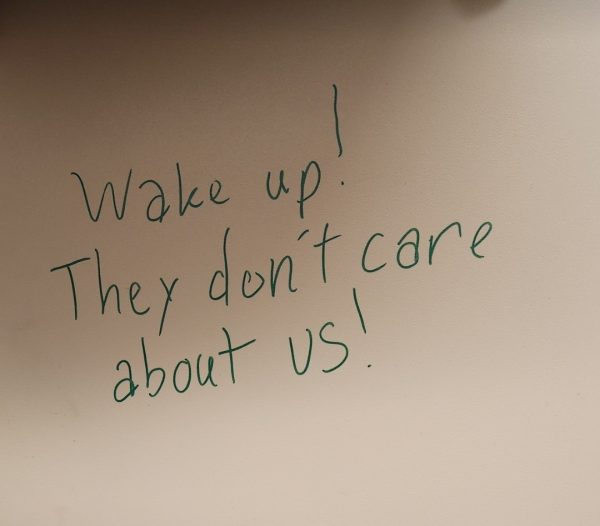 Wake up!
They don't care
about us!